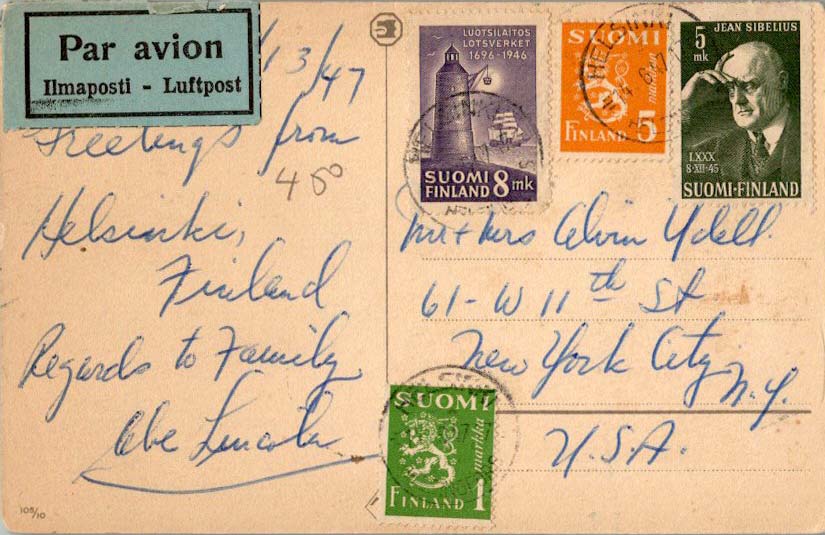 Par avion
Ilmaposti - Luftpost
/13/47
Greetings from
450
Helsinki,
Finland
Regards to Family
Abe Lincoln
105/10
LUOTSILAITOS
LOTSVERKET
1696-1946
SUOMI
FINLAND 8 mk
SUOMI
markkaa
FINLAND 5
HELSINKI
JEAN SIBELIUS
5
mk
LXXX
8·XII·45
SUOMI·FINLAND
Mr + Mrs Alvin Udell
61-W 11th St
New York City
N.Y.
U.S.A.
SUOMI
markka
FINLAND 1